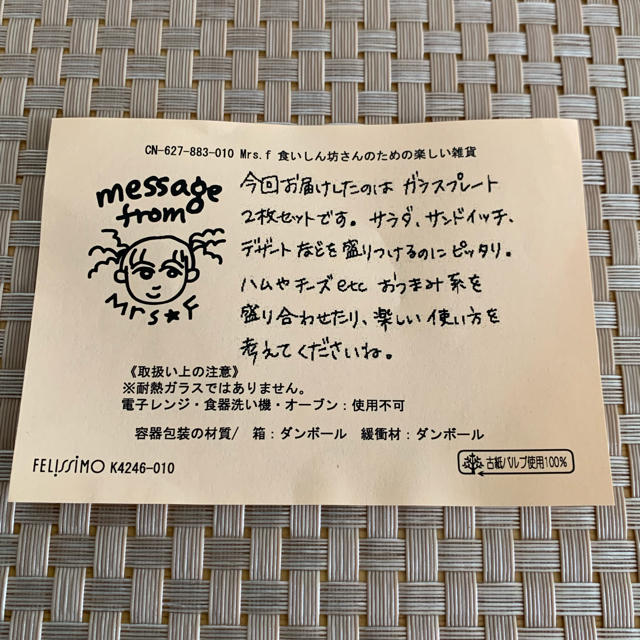 CN-627-883-010 Mrs.f 食いしん坊さんのための楽しい雑貨
message
from
Mrs★F
今回お届けしたのは ガラスプレート
2枚セットです。サラダ、サンドイッチ、
デザートなどを盛りつけるのにピッタリ。
ハムやチーズetc おつまみ系を
盛り合わせたり、楽しい使い方を
考えてくださいね。
《取扱い上の注意》
※耐熱ガラスではありません。
電子レンジ・食器洗い機・オーブン：使用不可
容器包装の材質/ 箱：ダンボール 緩衝材：ダンボール
FELISSIMO K4246-010
古紙パルプ使用100%